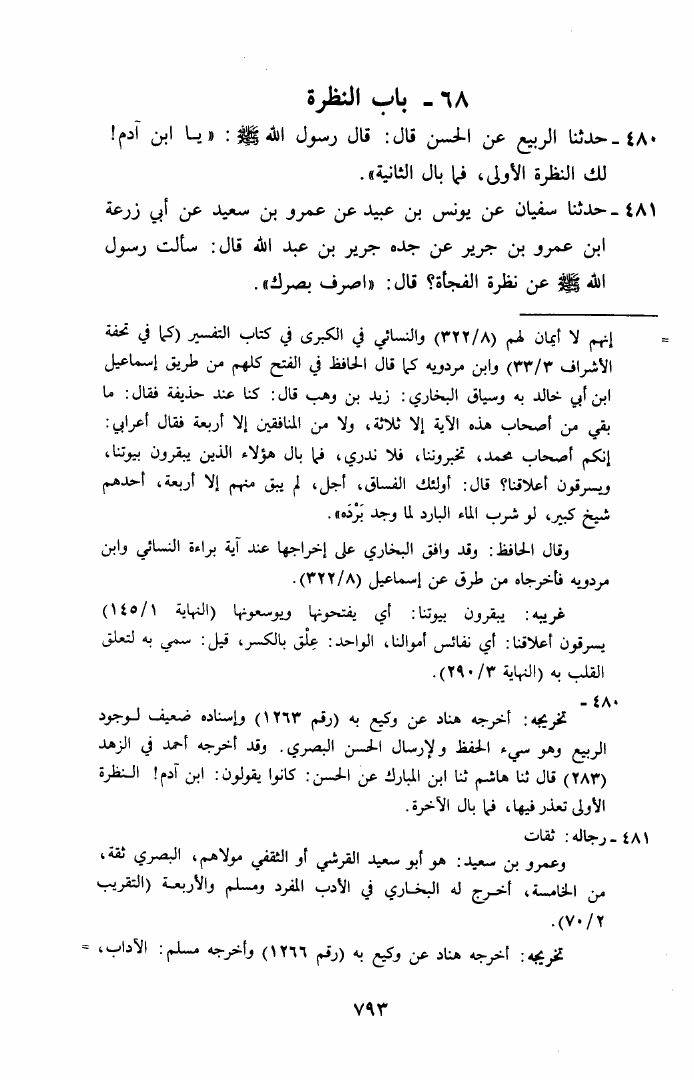 ٦٨ - باب النظرة
٤٨٠ - حدثنا الربيع عن الحسن قال: قال رسول الله ﷺ: «يا ابن آدم!
لك النظرة الأولى، فما بال الثانية».
٤٨١ - حدثنا سفيان عن يونس بن عبيد عن عمرو بن سعيد عن أبي زرعة
ابن عمرو بن جرير عن جده جرير بن عبد الله قال: سألت رسول
الله ﷺ عن نظرة الفجأة؟ قال: «اصرف بصرك».
= إنهم لا أيمان لهم (٣٢٢/٨) والنسائي في الكبرى في كتاب التفسير (كما في تحفة
الأشراف ٣٣/٣) وابن مردويه كما قال الحافظ في الفتح كلهم من طريق إسماعيل
ابن أبي خالد به وسياق البخاري: زيد بن وهب قال: كنا عند حذيفة فقال: ما
بقي من أصحاب هذه الآية إلا ثلاثة، ولا من المنافقين إلا أربعة فقال أعرابي:
إنكم أصحاب محمد، تخبروننا، فلا ندري، فما بال هؤلاء الذين يبقرون بيوتنا،
ويسرقون أعلاقنا؟ قال: أولئك الفساق، أجل، لم يبق منهم إلا أربعة، أحدهم
شيخ كبير، لو شرب الماء البارد لما وجد بَرْدَه».
وقال الحافظ: وقد وافق البخاري على إخراجها عند آية براءة النسائي وابن
مردويه فأخرجاه من طرق عن إسماعيل (٣٢٢/٨).
غريبه: يبقرون بيوتنا: أي يفتحونها ويوسعونها (النهاية ١٤٥/١)
يسرقون أعلاقنا: أي نفائس أموالنا، الواحد: عِلْق بالكسر، قيل: سمي به لتعلق
القلب به (النهاية ٢٩٠/٣).
٤٨٠ -
تخريجه: أخرجه هناد عن وكيع به (رقم ١٢٦٣) وإسناده ضعيف لوجود
الربيع وهو سيء الحفظ ولإرسال الحسن البصري. وقد أخرجه أحمد في الزهد
(٢٨٣) قال ثنا هاشم ثنا ابن المبارك عن الحسن: كانوا يقولون: ابن آدم! النظرة
الأولى تعذر فيها، فما بال الآخرة.
٤٨١ - رجاله: ثقات
وعمرو بن سعيد: هو أبو سعيد القرشي أو الثقفي مولاهم، البصري ثقة،
من الخامسة، أخرج له البخاري في الأدب المفرد ومسلم والأربعة (التقريب
٧٠/٢).
تخريجه: أخرجه هناد عن وكيع به (رقم ١٢٦٦) وأخرجه مسلم: الآداب، =
٧٩٣